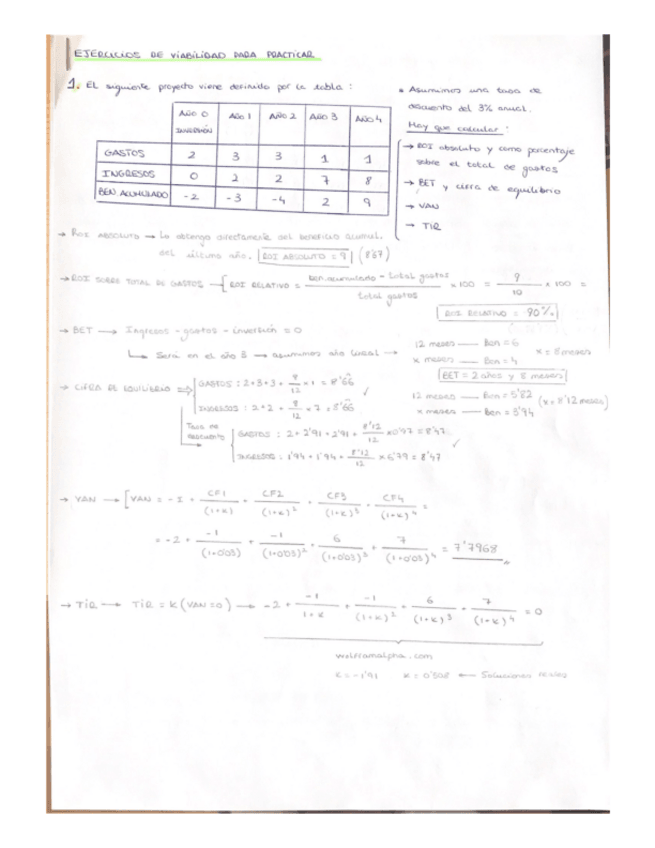 EJERCICIOS DE VIABILIDAD PARA PRACTICAR
1. El siguiente proyecto viene definido por la tabla:
AÑO 0 INVERSIÓN AÑO 1 AÑO 2 AÑO 3 AÑO 4
GASTOS 2 3 3 1 1
INGRESOS 0 2 2 7 8
BEN. ACUMULADO -2 -3 -4 2 9
* Asumimos una tasa de
descuento del 3% anual.
Hay que calcular:
→ ROI absoluto y como porcentaje
sobre el total de gastos
→ BET y cifra de equilibrio
→ VAN
→ TIR
→ ROI ABSOLUTO → Lo obtengo directamente del beneficio acumul.
del último año. ROI ABSOLUTO = 9 (8'67)
→ ROI SOBRE TOTAL DE GASTOS → ROI RELATIVO = ben. acumulado - total gastos / total gastos × 100 = 9/10 × 100 =
ROI RELATIVO = 90%
→ BET → Ingresos - gastos - inversión = 0
↳ Será en el año 3 → asumimos año lineal →
12 meses — Ben = 6
x meses — Ben = 4
x = 8 meses
BET = 2 años y 8 meses
→ CIFRA DE EQUILIBRIO ⇒ GASTOS: 2+3+3+ 8/12 × 1 = 8'66
INGRESOS: 2+2+ 8/12 × 7 = 8'66 ✓
12 meses — Ben = 5'82
x meses — Ben = 3'94
(x = 8'12 meses)
Tasa de descuento
GASTOS: 2+2'91+2'91+ 8'12/12 × 0'97 = 8'47
INGRESOS: 1'94+1'94+ 8'12/12 × 6'79 = 8'47 ✓
→ VAN → VAN = -I + CF1/(1+K) + CF2/(1+K)² + CF3/(1+K)³ + CF4/(1+K)⁴ =
= -2 + -1/(1+0'03) + -1/(1+0'03)² + 6/(1+0'03)³ + 7/(1+0'03)⁴ = 7'7968
→ TIR → TIR = K (VAN=0) → -2 + -1/1+K + -1/(1+K)² + 6/(1+K)³ + 7/(1+K)⁴ = 0
wolframalpha.com
K = -1'91 K = 0'508 ← Soluciones reales